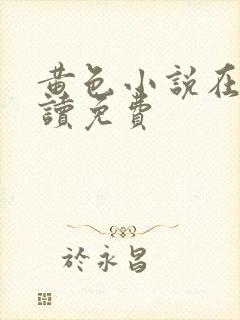 黄色小說在
讀免費
於永昌